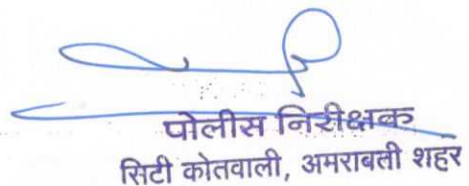 पोलीस निरीक्षक
सिटी कोतवाली, अमरावती शहर